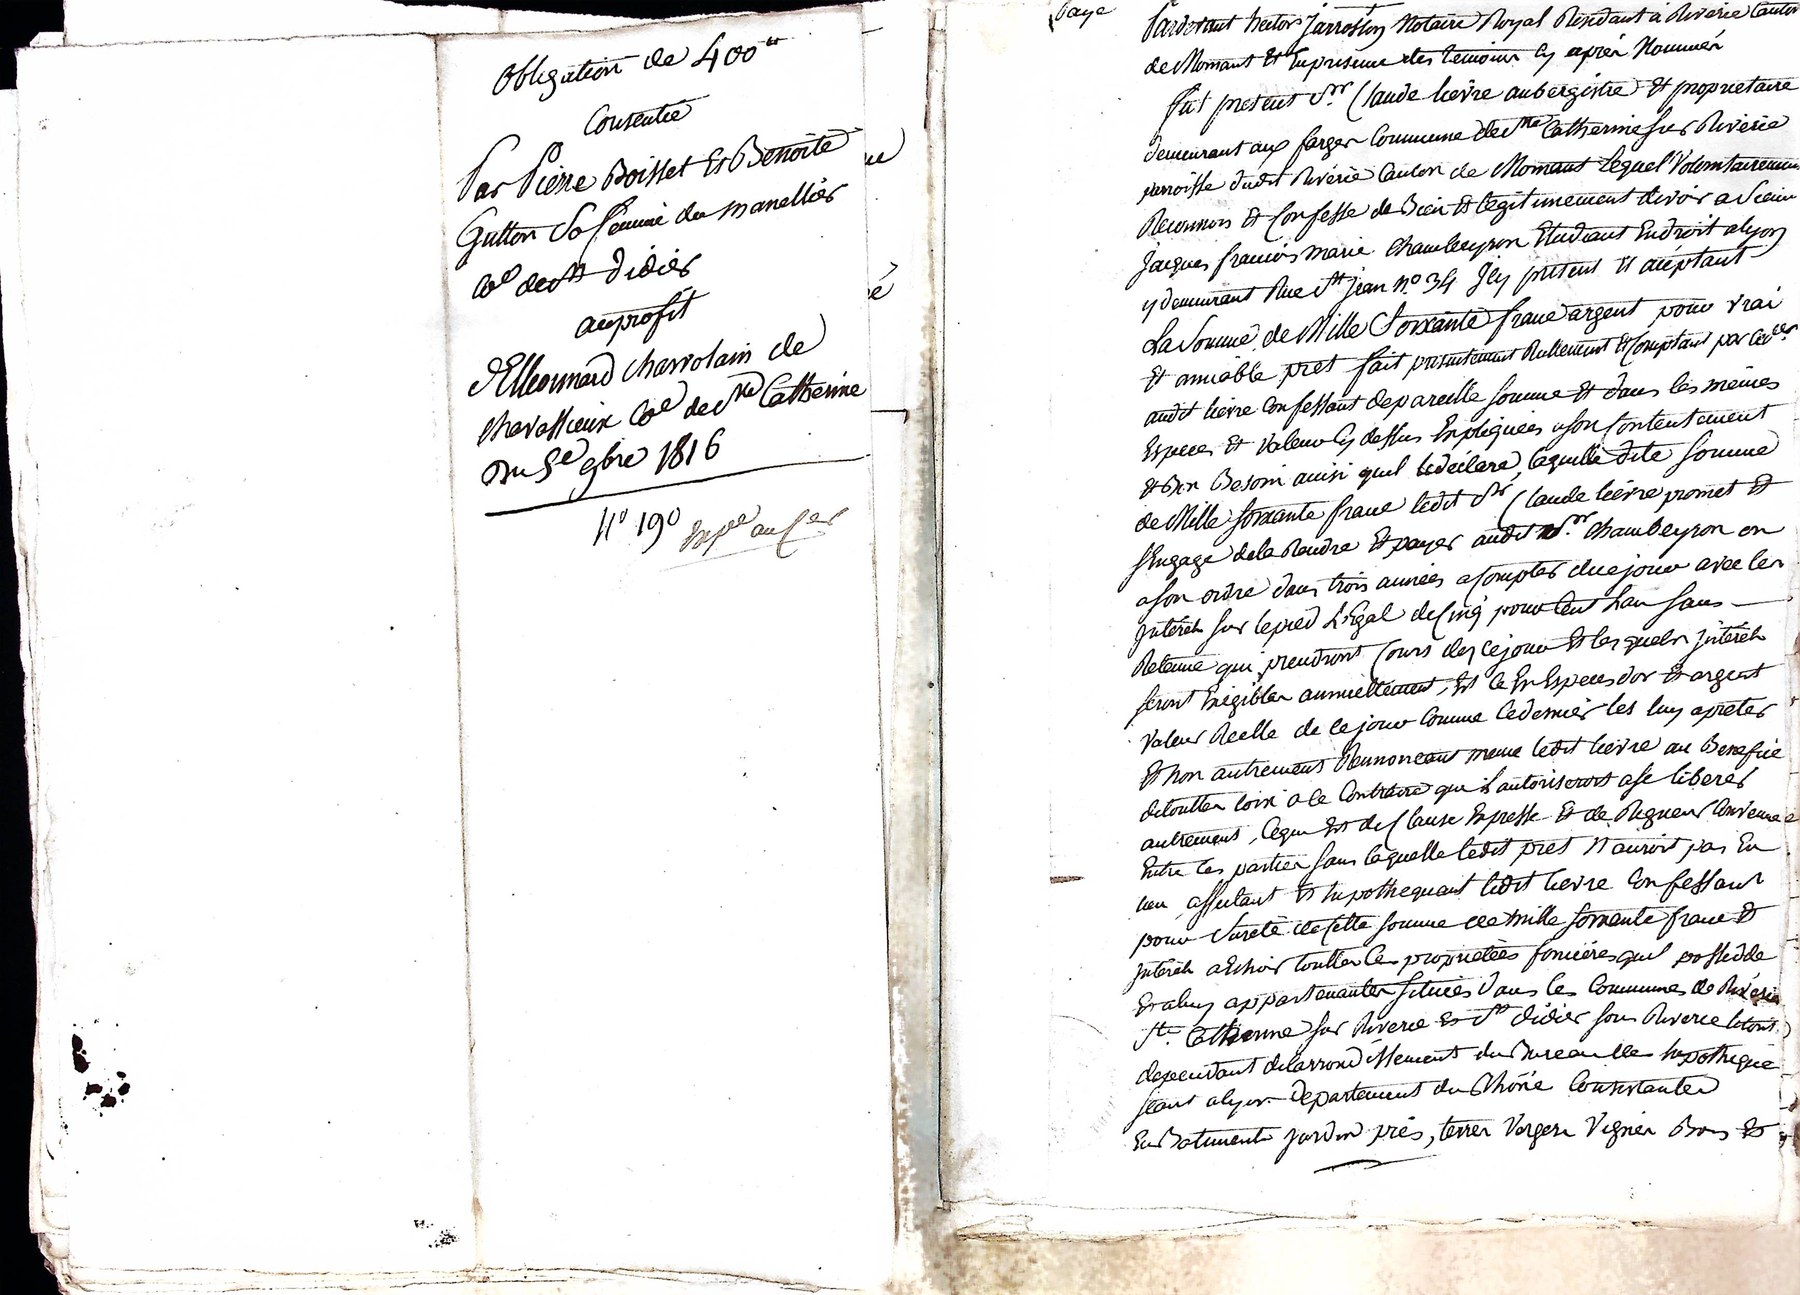 Obligation de 400#
Consentie
Par Pierre Boisset Et Benoite
Gutton Sa femme du manellier
Coe de st didier
auprofit
dElleonnard charrolain de
chavassieux Coe de ste Catherine
Du 5e 9bre 1816
No 190 Expee au Cer
Paye
Pardevant hector Jarrosson Notaire Royal Résidant à Riverie Canton
de Mornant Et En presence des temoins Cy après Nommés
fut present Sr Claude lievre aubergiste Et propriétaire
demeurant aux farges Commune de ste Catherine sur Riverie
parroisse dudit Riverie Canton de Mornant Lequel Volontairement
Reconnoit Et Confesse de Bien Et légitimement devoir a Sieur
Jacques françois marie Chambeyron Etudiant En droit a lyon
y demeurant Rue st jean no 34 Icy present Et acéptant
La Somme de Mille Soixante franc argent pour vrai
Et amiable pret fait presentement Réellement Et Comptant par Ce dr
audit lievre Confessant de pareille somme Et dans les mêmes
Especes Et valeur Cy dessus Expliquées a son Contentement
Et Bon Besoin ainsi quil le déclare, laquelle dite somme
de Mille soixante franc ledit Sr Claude lievre promet Et
sEngage de la Rendre Et payer audit Sr Chambeyron ou
a son ordre dans trois années a Compter de ce jour avec les
jntérèts sur le pied Légal de Cinq pour Cent L'an sans
Retenue qui prendront Cours dès ce jour Et lesquels jntérèts
seront Exigibles annuellement, Et ce En Especes d'or Et argent
valeur Réelle de ce jour Comme ce dernier les luy a pretés
Et non autrement Rennoncant meme ledit lievre au Benefice
de touttes loix a ce Contraire qui l'autoriseroit a se liberer
autrement, Cequi Est de Clause Expresse Et de Rigueur Convenue
Entre les parties sans laquelle ledit pret N'auroit pas Eu
lieu, affectant Et hypothequant ledit lievre Confessant
pour Sureté de Cette somme de mille soixante franc Et
jntérèts a Echoir touttes les propriétées foncières quil possède
Et a luy appartenantes situées dans les Communes de Riverie
Ste Catherine sur Riverie Et st didier sous Riverie le tout
dependant de larrondissement du Bureau des hypotheque
séant a lyon departement du Rhône Consistantes
En Batiments jardin près, terres Vergers Vignes Bois Et